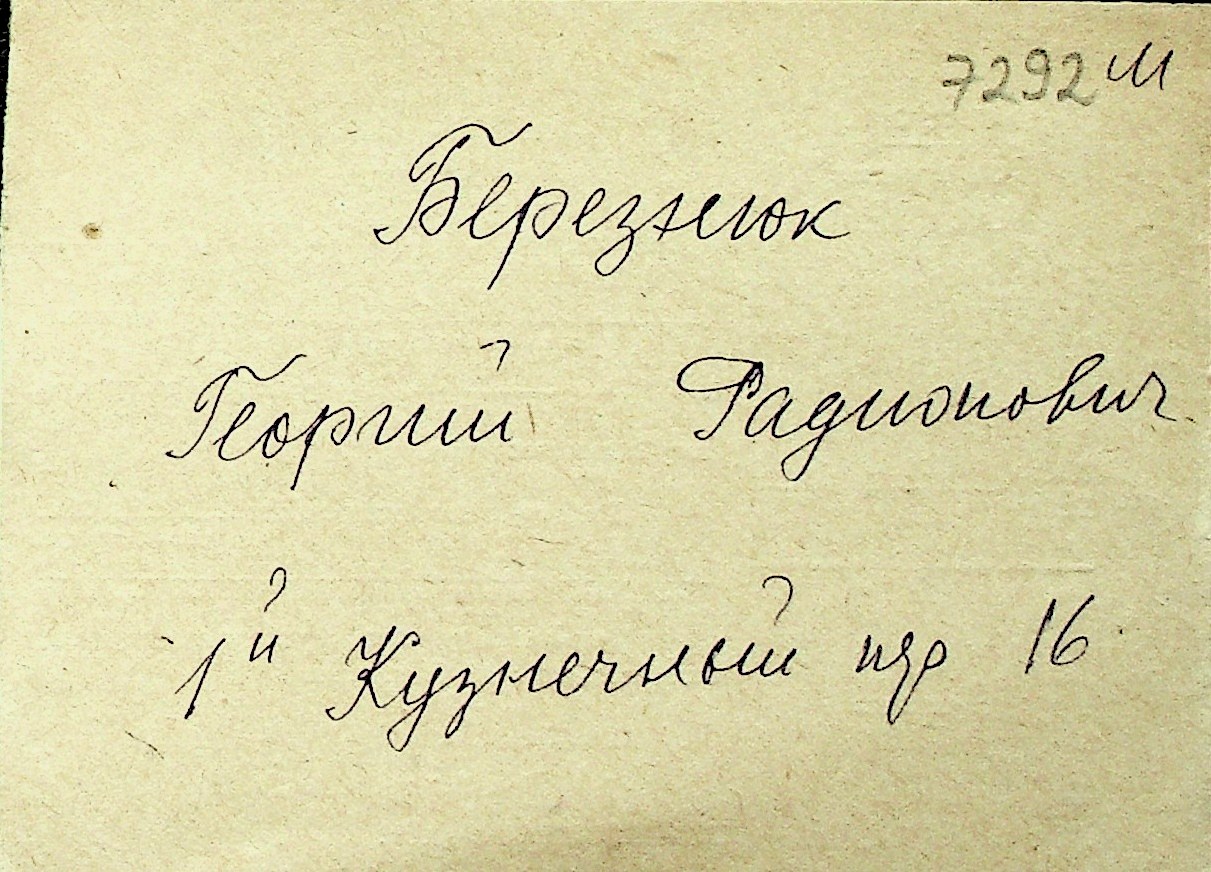 7292 м
Березнюк
Георгий Радионович
1й Кузнечный пер 16